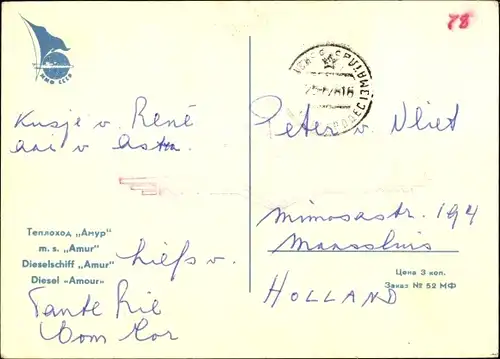 78
ММФ СССР
Kusje v. René
aai v Astra.
Peter v. Vliet
Mimosastr. 194
Maassluis
HOLLAND
Теплоход „Амур"
m. s. „Amur"
Dieselschiff „Amur"
Diesel «Amour»
Liefs v.
Tante Rie
Oom Cor
Цена 3 коп.
Заказ № 52 МФ